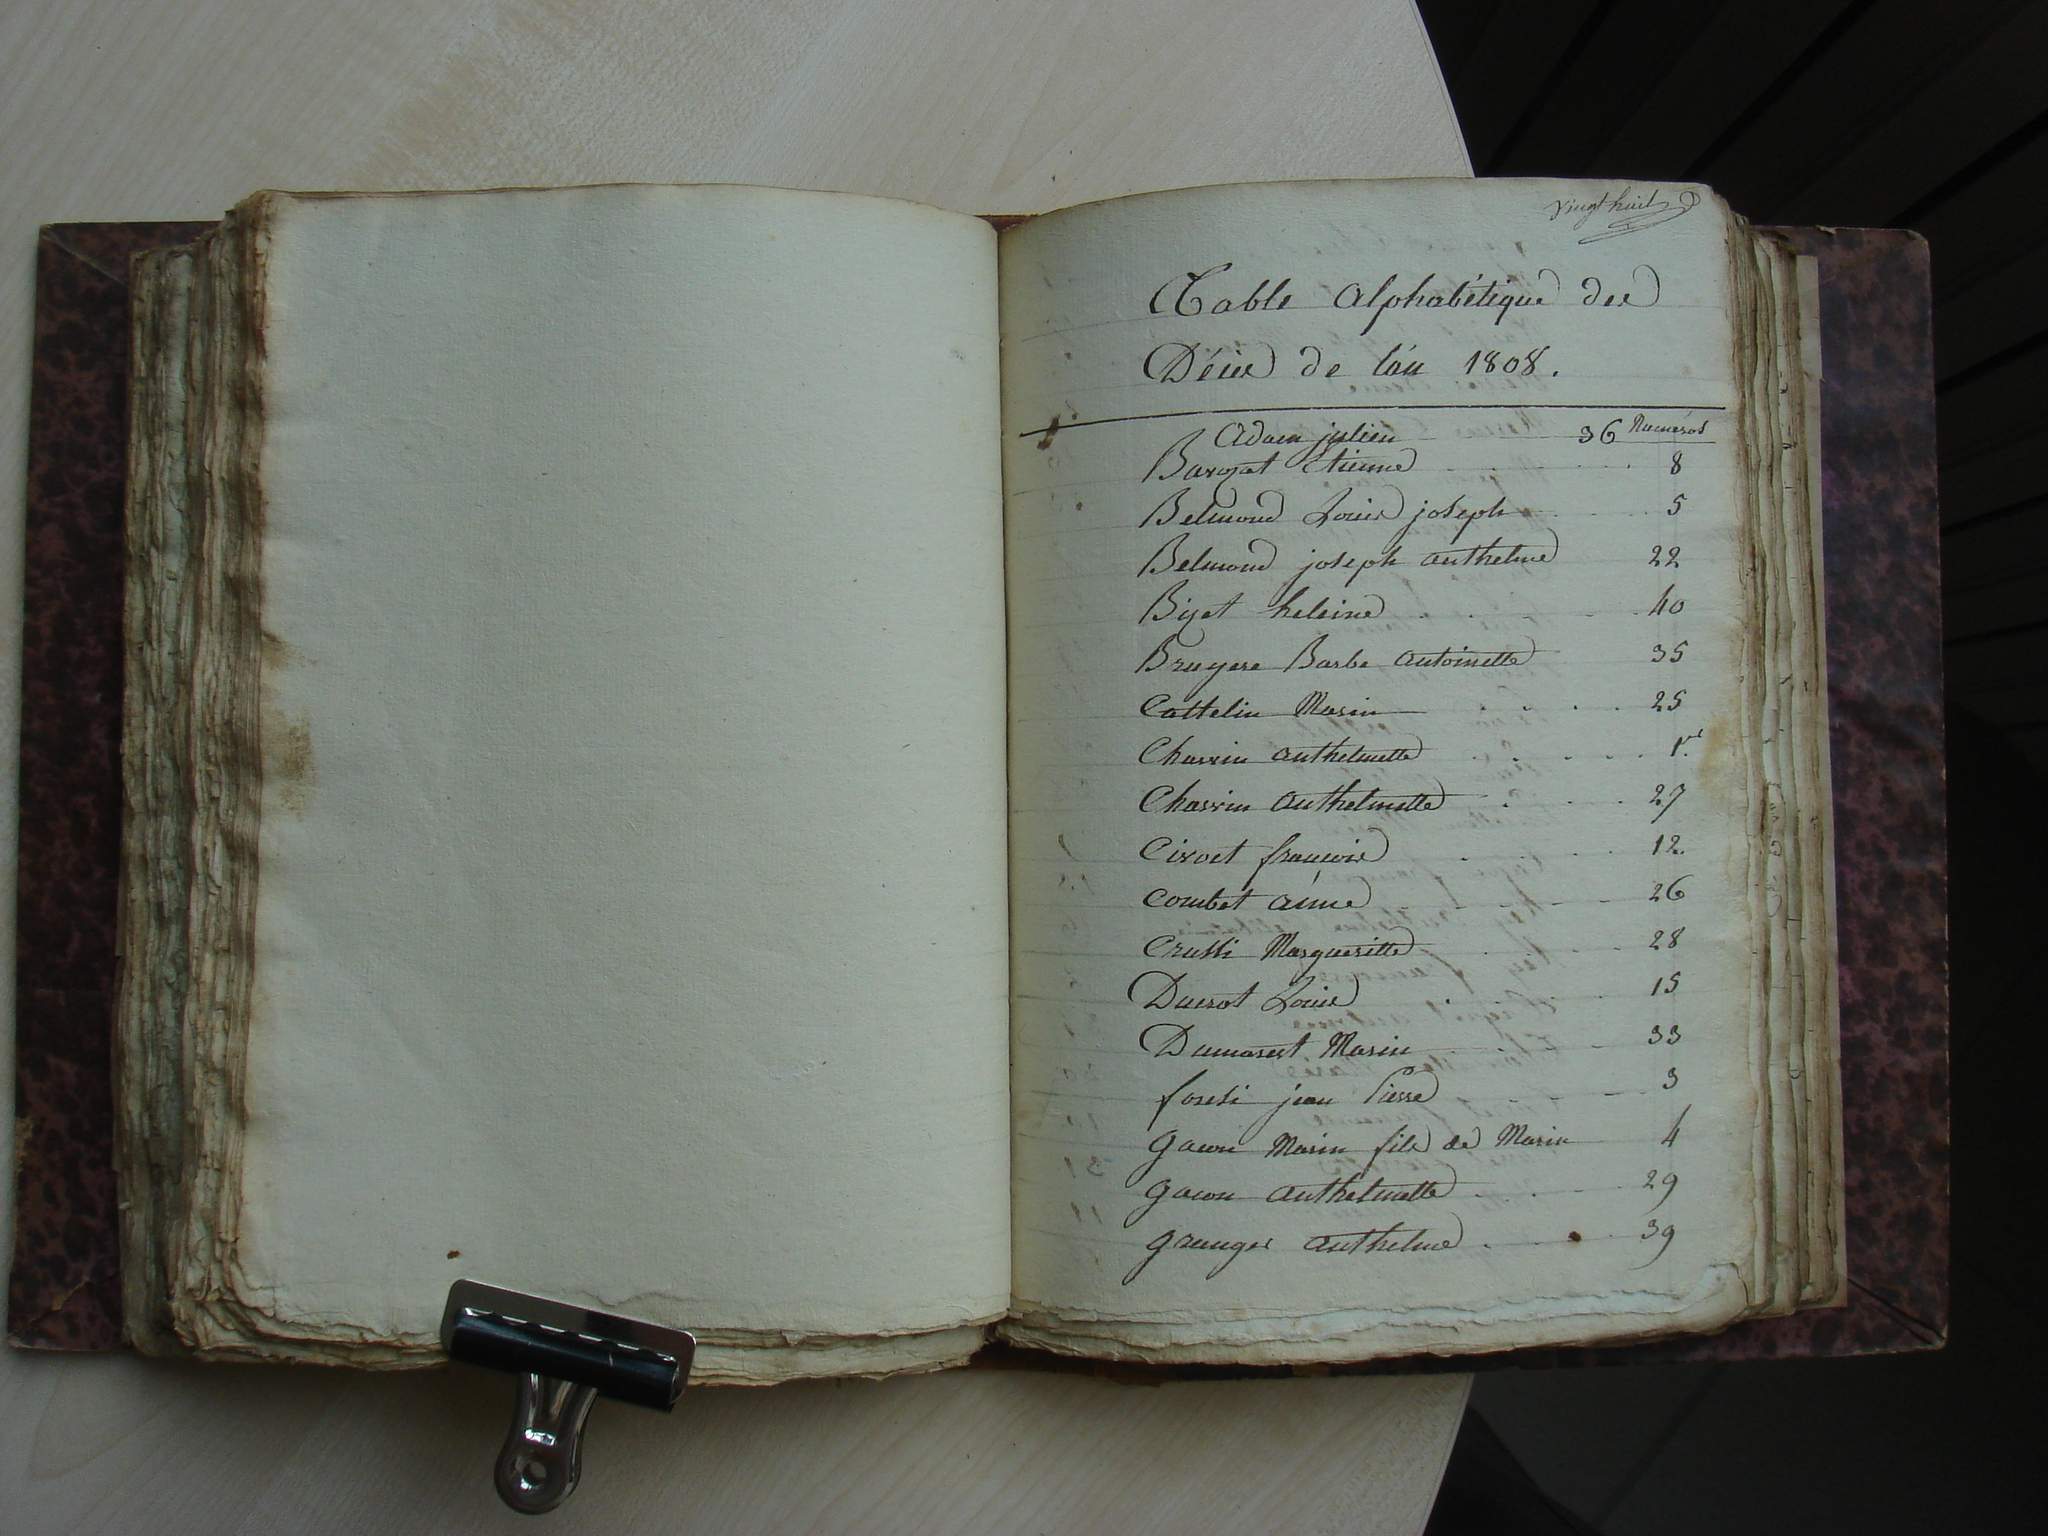 vingt huit
Table alphabétique des
Décès de l'an 1808.
Numéros
Adam julien 36
Barozat Etienne 8
Belmond Louis joseph 5
Belmond joseph anthelme 22
Bizet heleine 40
Bruyere Barbe antoinette 35
Cattelin Marin 25
Charvin anthelmette 1er
Charvin anthelmette 27
Civoct françois 12.
Combet aimé 26
Crussi Margueritte 28
Ducrot Louis 15
Dumarest Marin 33
foresti jean Pierre 3
gacon Marin fils de Marin 4
gacon anthelmette 29
granger anthelme 39